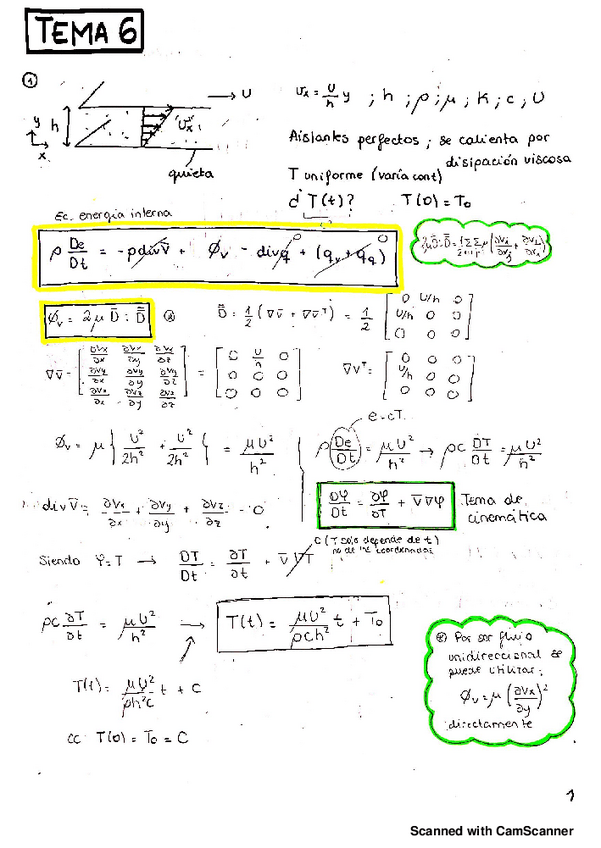 TEMA 6
①
U
y
h
x
Ux
quieta
Ux = U/h y ; h ; ρ ; μ ; K ; c ; U
Aislantes perfectos ; se calienta por
disipación viscosa
T uniforme (varía cont)
¿ T(t)? T(0) = T₀
Ec. energía interna
ρ De/Dt = -p div v̄ + Φv - div q + (qv + qq)
Φv = 2μ D̄ : D̄
D̄ = 1/2 (∇v̄ + ∇v̄ᵀ) = 1/2 [0 U/h 0; U/h 0 0; 0 0 0]
∇v̄ = [∂Vx/∂x ∂Vx/∂y ∂Vx/∂z; ∂Vy/∂x ∂Vy/∂y ∂Vy/∂z; ∂Vz/∂x ∂Vz/∂y ∂Vz/∂z] = [0 U/h 0; 0 0 0; 0 0 0]
∇vᵀ = [0 0 0; U/h 0 0; 0 0 0]
e = cT
Φv = μ { U²/2h² + U²/2h² } = μU²/h²
ρ De/Dt = μU²/h² → ρc DT/Dt = μU²/h²
div v̄ = ∂Vx/∂x + ∂Vy/∂y + ∂Vz/∂z = 0
Dφ/Dt = ∂φ/∂T + v̄ ∇φ
Tema de
cinemática
0 (T solo depende de t)
no de las coordenadas
Siendo φ = T → DT/Dt = ∂T/∂t + v̄ ∇T
ρc ∂T/∂t = μU²/h² → T(t) = μU²/ρch² t + T₀
T(t) = μU²/ρh²c t + C
cc: T(0) = T₀ = C
Por ser flujo
unidireccional se
puede utilizar:
Φv = μ (∂Vx/∂y)²
directamente
1
Scanned with CamScanner